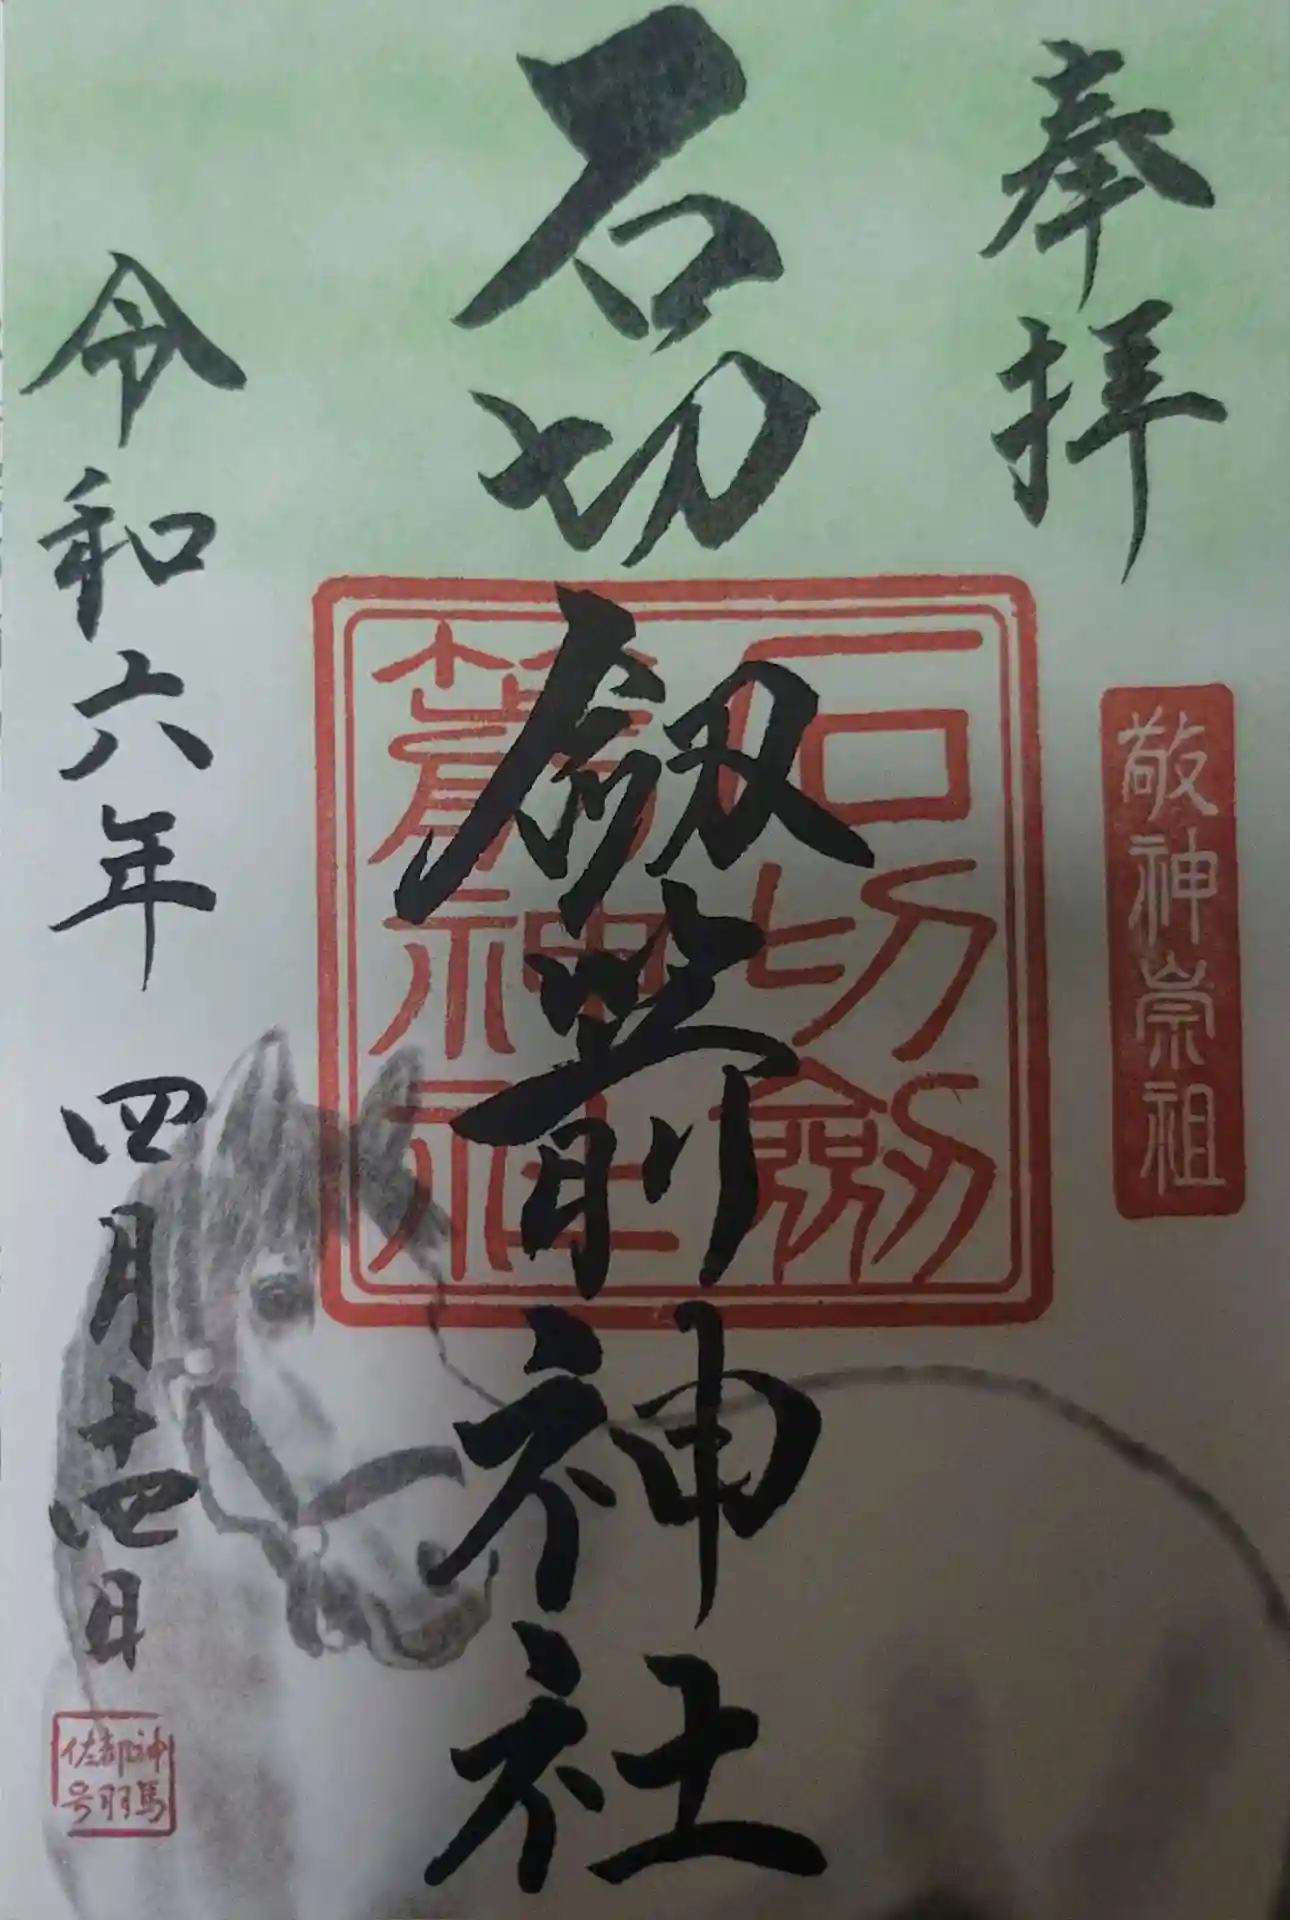 奉拝
敬神崇祖
石切劔箭神社
石切劔
箭神社
令和六年四月十四日
神馬
都羽
佐号